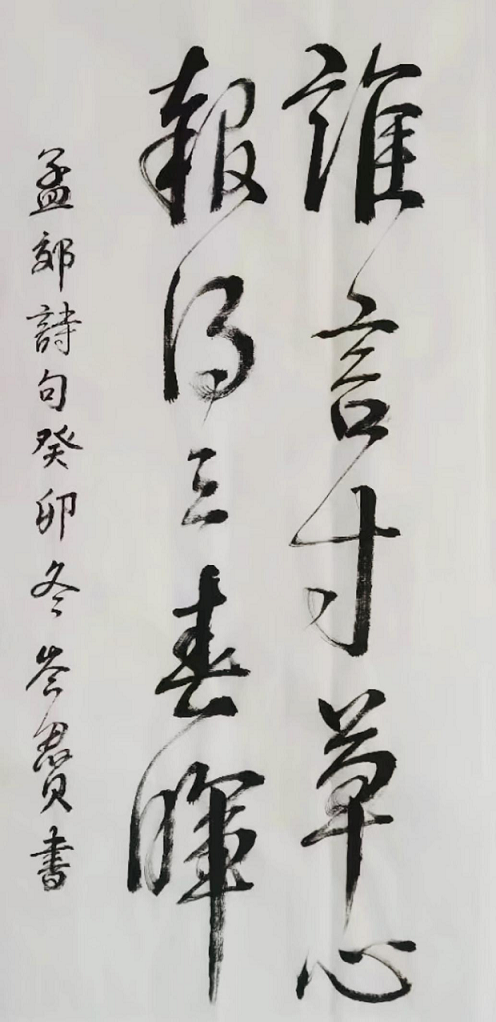 誰言寸草心
報得三春暉
孟郊詩句癸卯冬岑貴书